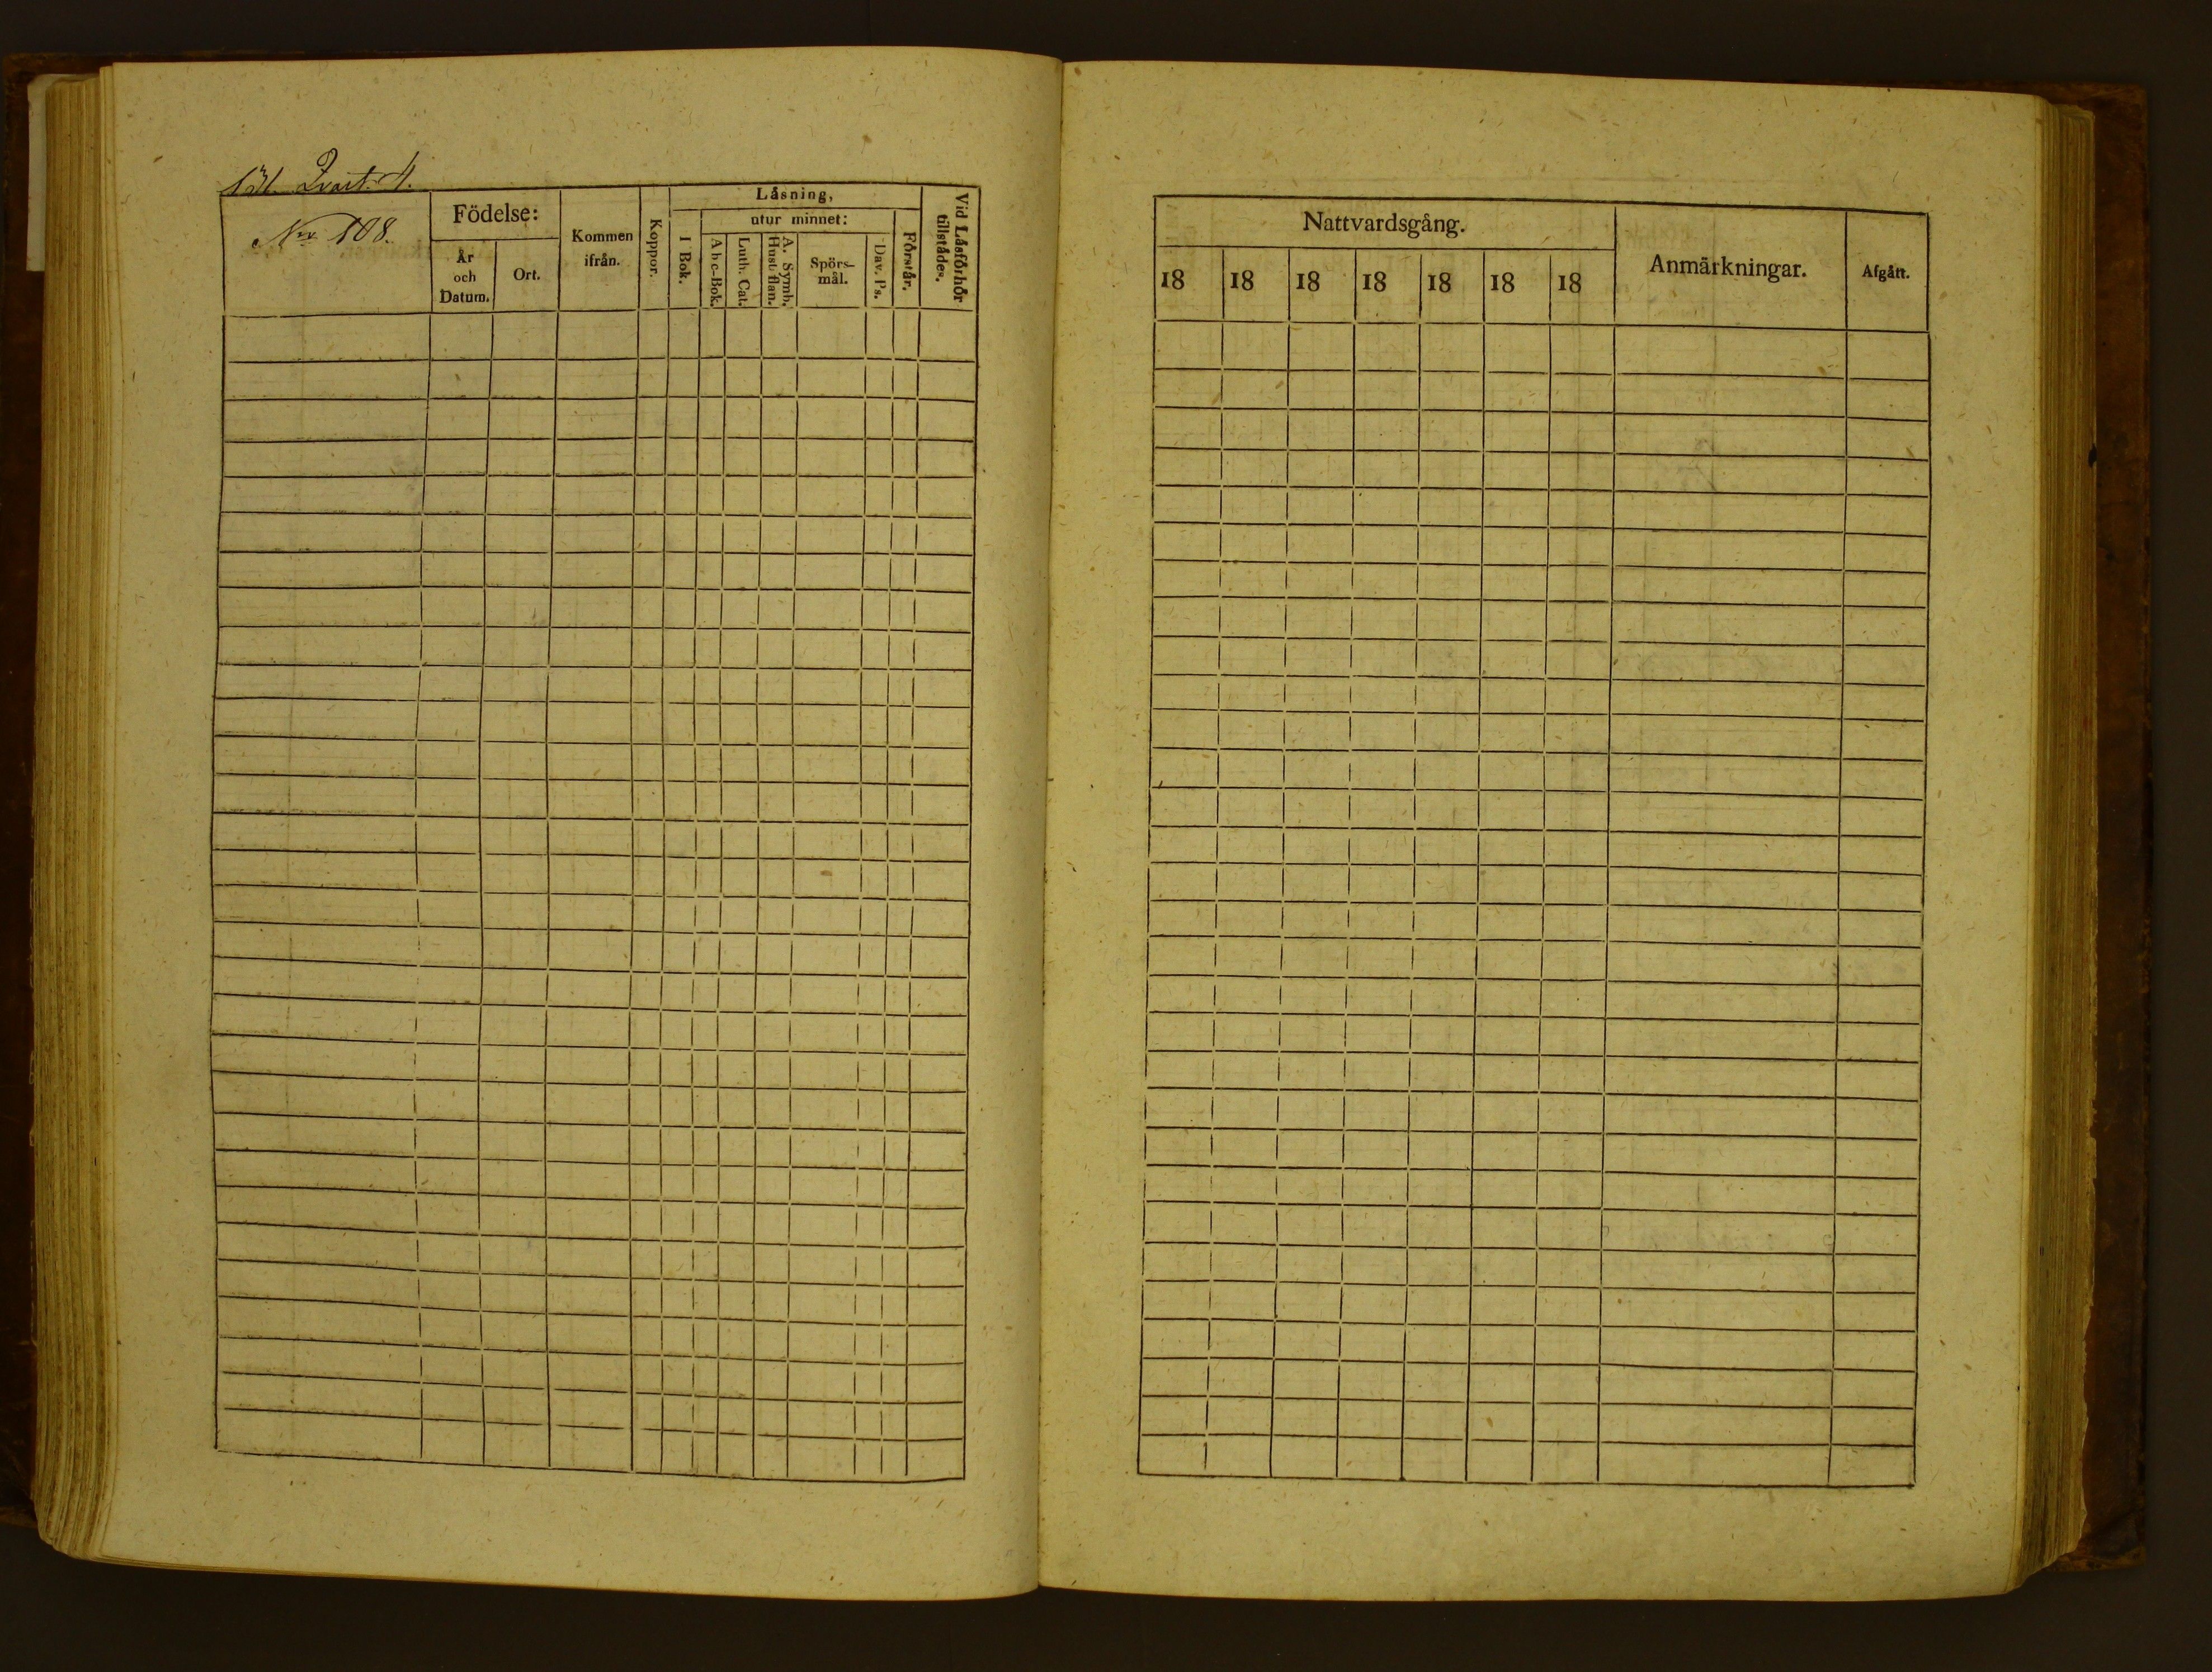 131. Quart. 4.
Nro 108.
Födelse:
År
och
Datum.
Ort.
Kommen
ifrån.
Koppor.
Låsning,
I Bok.
utur minnet:
A b c-Bok.
Luth. Cat.
A. Symb.
Hust. flan.
Spörs-
mål.
Dav. Ps.
Förstår.
Vid Låsförhör
tillstådes.
Nattvardsgång.
18 18 18 18 18 18 18
Anmärkningar.
Afgått.